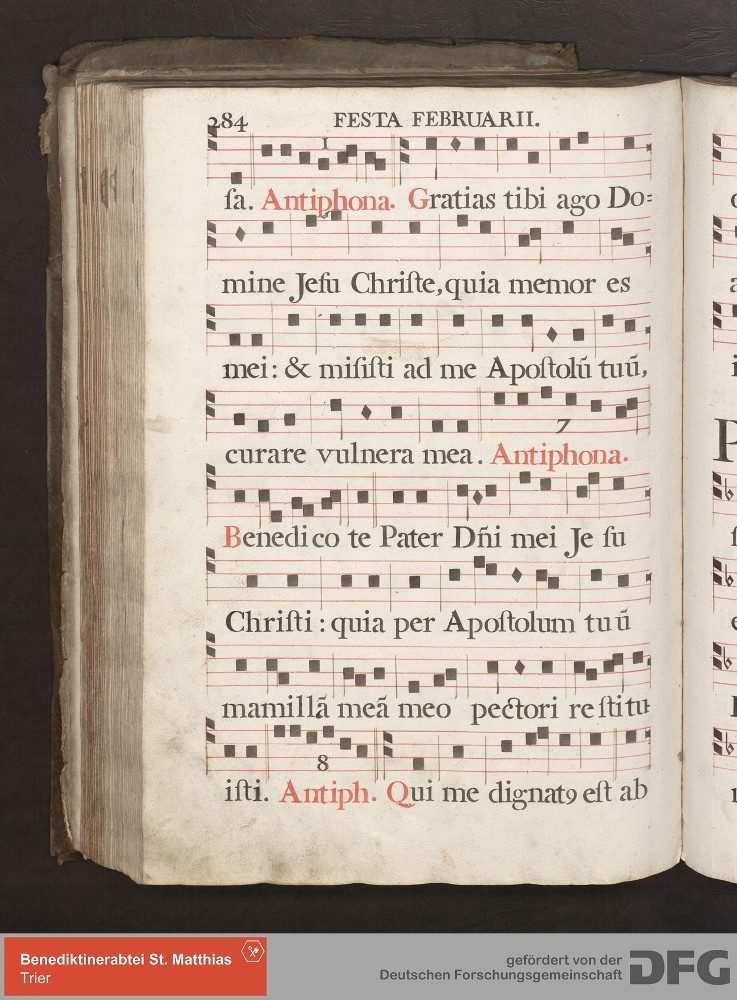 284 FESTA FEBRUARII.
1
ſa. Antiphona. Gratias tibi ago Do=
mine Jeſu Chriſte, quia memor es
mei: & miſiſti ad me Apoſtolũ tuũ,
7
curare vulnera mea. Antiphona.
Benedico te Pater Dñi mei Je ſu
Chriſti: quia per Apoſtolum tuũ
mamillã meã meo pectori reſtitu-
8
iſti. Antiph. Qui me dignatꝯ eſt ab
Benediktinerabtei St. Matthias
Trier
gefördert von der
Deutschen Forschungsgemeinschaft
DFG